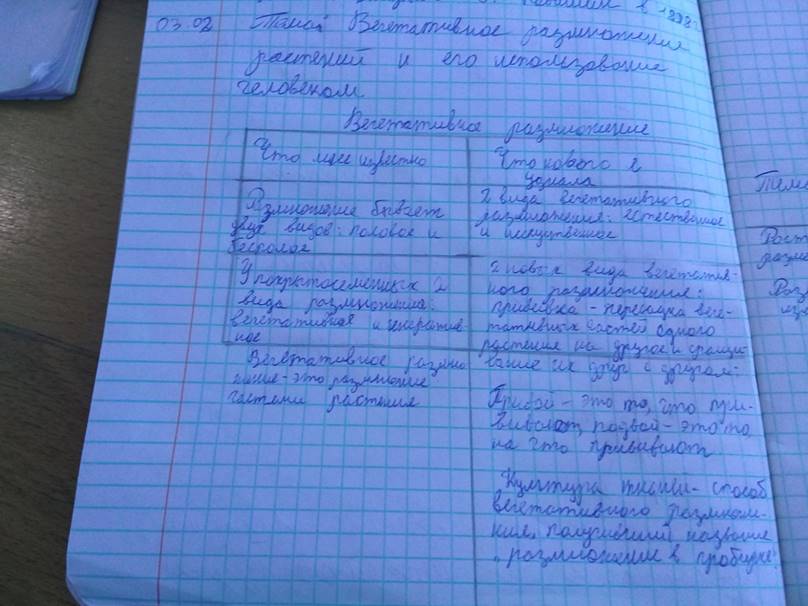 в 1998г
03.02 Тема: Вегетативное размножение
растений и его использование
человеком
Вегетативное размножение
Что мне известно
Что нового я
узнала
Размножение бывает
двух видов: половое и
бесполое
2 вида вегетативного
размножения: естественное
и искуственное
У покрытосеменных 2
вида размножения:
вегетативное и генератив-
ное
2 новых вида вегетатив-
ного размножения:
прививка - пересадка веге-
тативных частей одного
растения на другое и сращи-
вание их друг с другом.
Вегетативное размно
жение - это размножение
частями растения
Привой - это то, что при-
вивают, подвой - это то,
на что прививают
Культура тканей - способ
вегетативного размноже-
ния, получивший название
"размножение в пробирке"
Тема
Раст
разм
Разм
изве